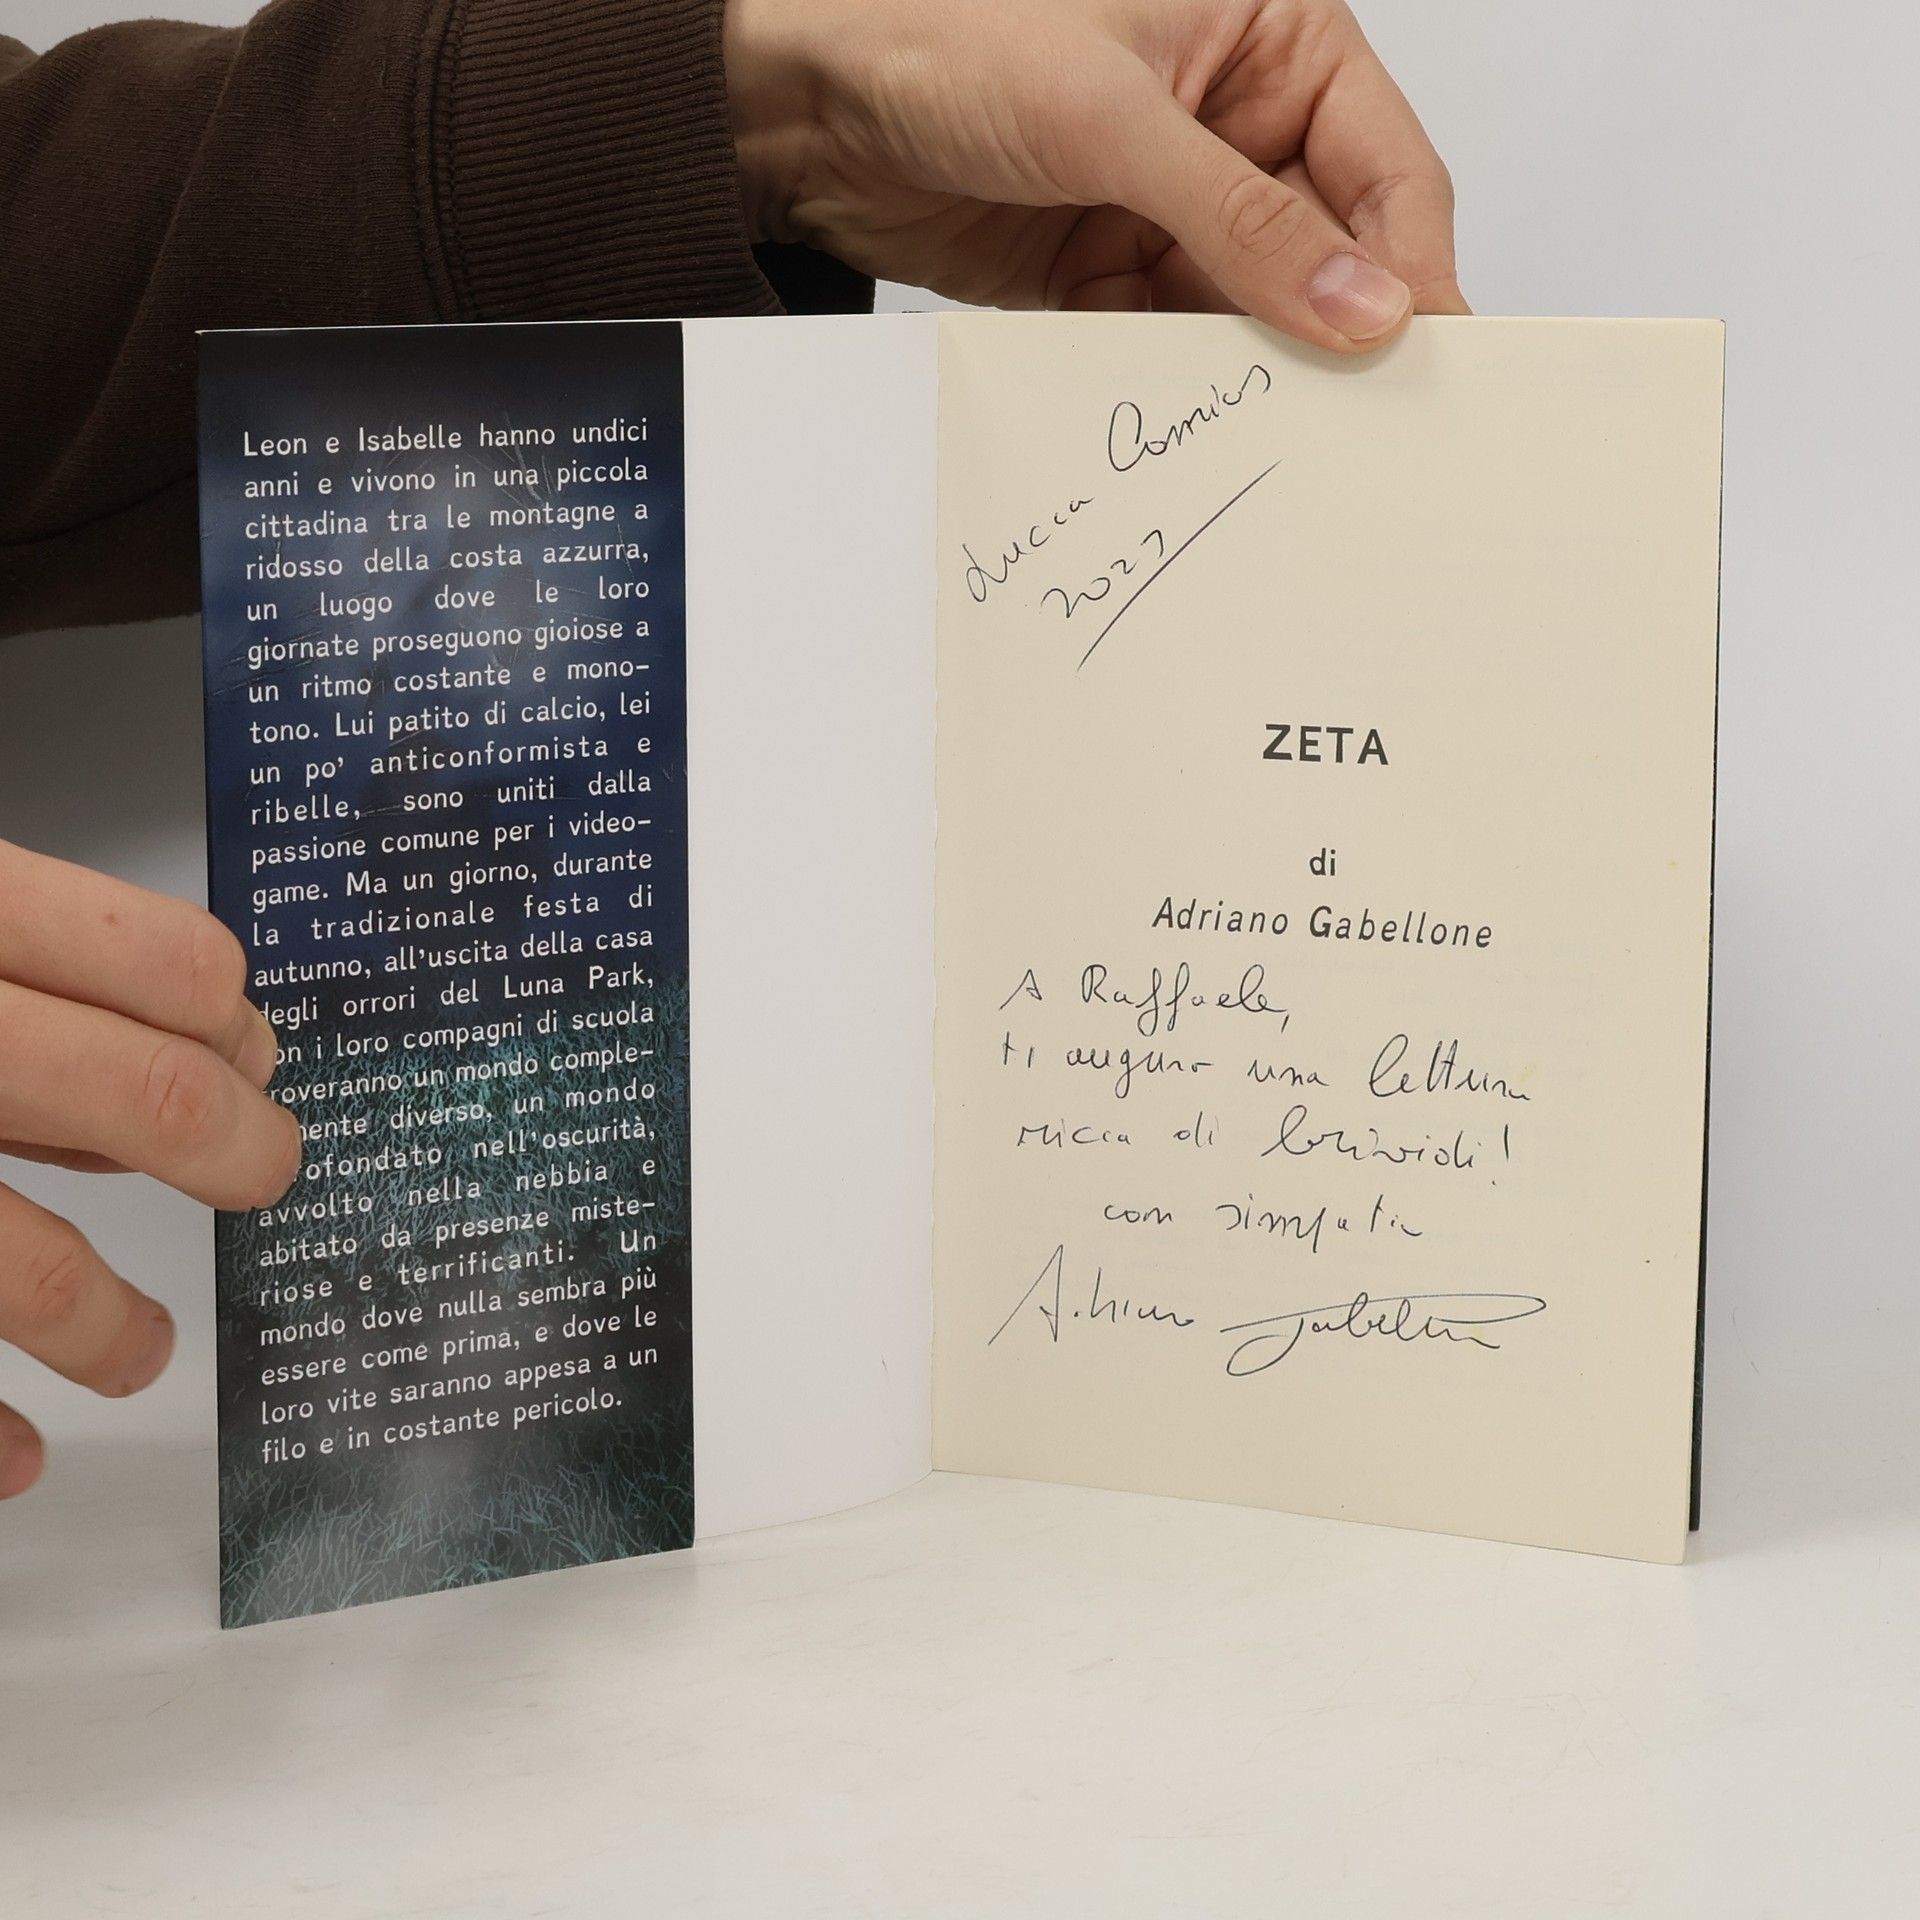 Leon e Isabelle hanno undici
anni e vivono in una piccola
cittadina tra le montagne a
ridosso della costa azzurra,
un luogo dove le loro
giornate proseguono gioiose a
un ritmo costante e mono-
tono. Lui patito di calcio, lei
un po' anticonformista e
ribelle, sono uniti dalla
passione comune per i video-
game. Ma un giorno, durante
la tradizionale festa di
autunno, all'uscita della casa
degli orrori del Luna Park,
on i loro compagni di scuola
roveranno un mondo comple-
mente diverso, un mondo
ofondato nell'oscurità,
avvolto nella nebbia e
abitato da presenze miste-
riose e terrificanti. Un
mondo dove nulla sembra più
essere come prima, e dove le
loro vite saranno appesa a un
filo e in costante pericolo.
Lucca Comics
2023
ZETA
di
Adriano Gabellone
A Raffaele,
ti auguro una lettura
ricca di brividi!
con simpatia
Adriano Gabellone